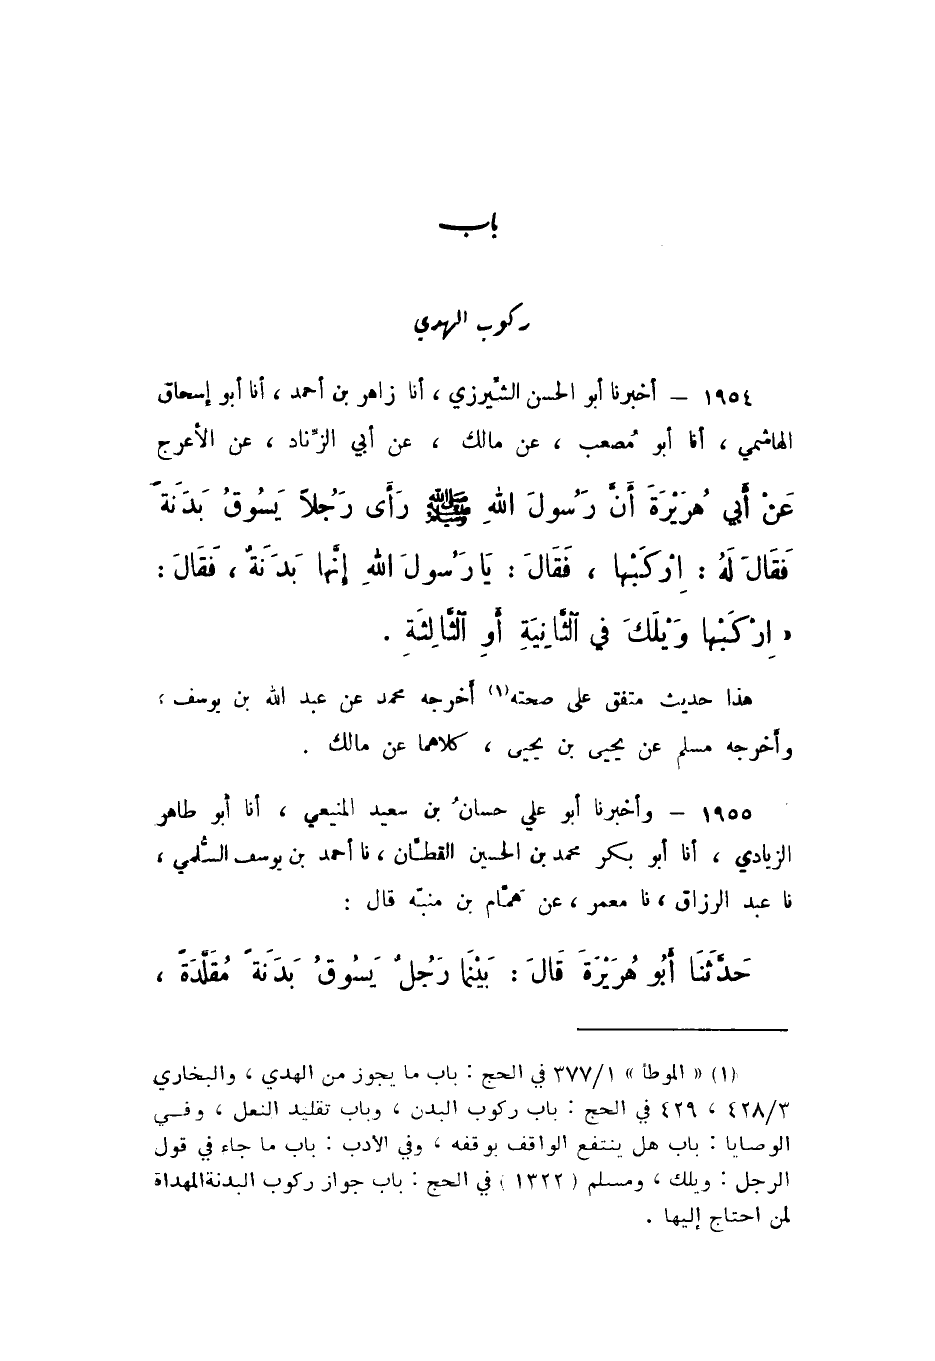 باب
ركوب الهدي
١٩٥٤ – أخبرنا أبو الحسن الشّيرزي ، أنا زاهر بن أحمد ، أنا أبو إسحاق
الهاشمي ، أنا أبو مُصعب ، عن مالك ، عن أبي الزّناد ، عن الأعرج
عَنْ أَبي هُرَيْرَةَ أَنَّ رَسُولَ اللهِ ﷺ رَأَى رَجُلاً يَسُوقُ بَدَنَةً
فَقَالَ لَهُ : اِرْكَبْها ، فَقَالَ : يَا رَسُولَ اللهِ إِنَّها بَدَنَةٌ ، فَقَالَ :
« اِرْكَبْها وَيْلَكَ في الثَّانِيَةِ أَوِ الثَّالِثَةِ .
هذا حديث متفق على صحته(١) أخرجه محمد عن عبد الله بن يوسف ،
وأخرجه مسلم عن يحيى بن يحيى ، كلاهما عن مالك .
١٩٥٥ – وأخبرنا أبو علي حسانُ بن سعيد المنيعي ، أنا أبو طاهر
الزيادي ، أنا أبو بكر محمد بن الحسين القطّان ، نا أحمد بن يوسف السُّلمي ،
نا عبد الرزاق ، نا معمر ، عن همّام بن منبّه قال :
حَدَّثَنَا أَبُو هُرَيْرَةَ قَالَ : بَيْنَما رَجُلٌ يَسُوقُ بَدَنَةً مُقَلَّدَةً ،
(١) « الموطأ » ٣٧٧/١ في الحج : باب ما يجوز من الهدي ، والبخاري
٤٢٨/٣ ، ٤٢٩ في الحج : باب ركوب البدن ، وباب تقليد النعل ، وفي
الوصايا : باب هل ينتفع الواقف بوقفه ، وفي الأدب : باب ما جاء في قول
الرجل : ويلك ، ومسلم ( ١٣٢٢ ) في الحج : باب جواز ركوب البدنة المهداة
لمن احتاج إليها .